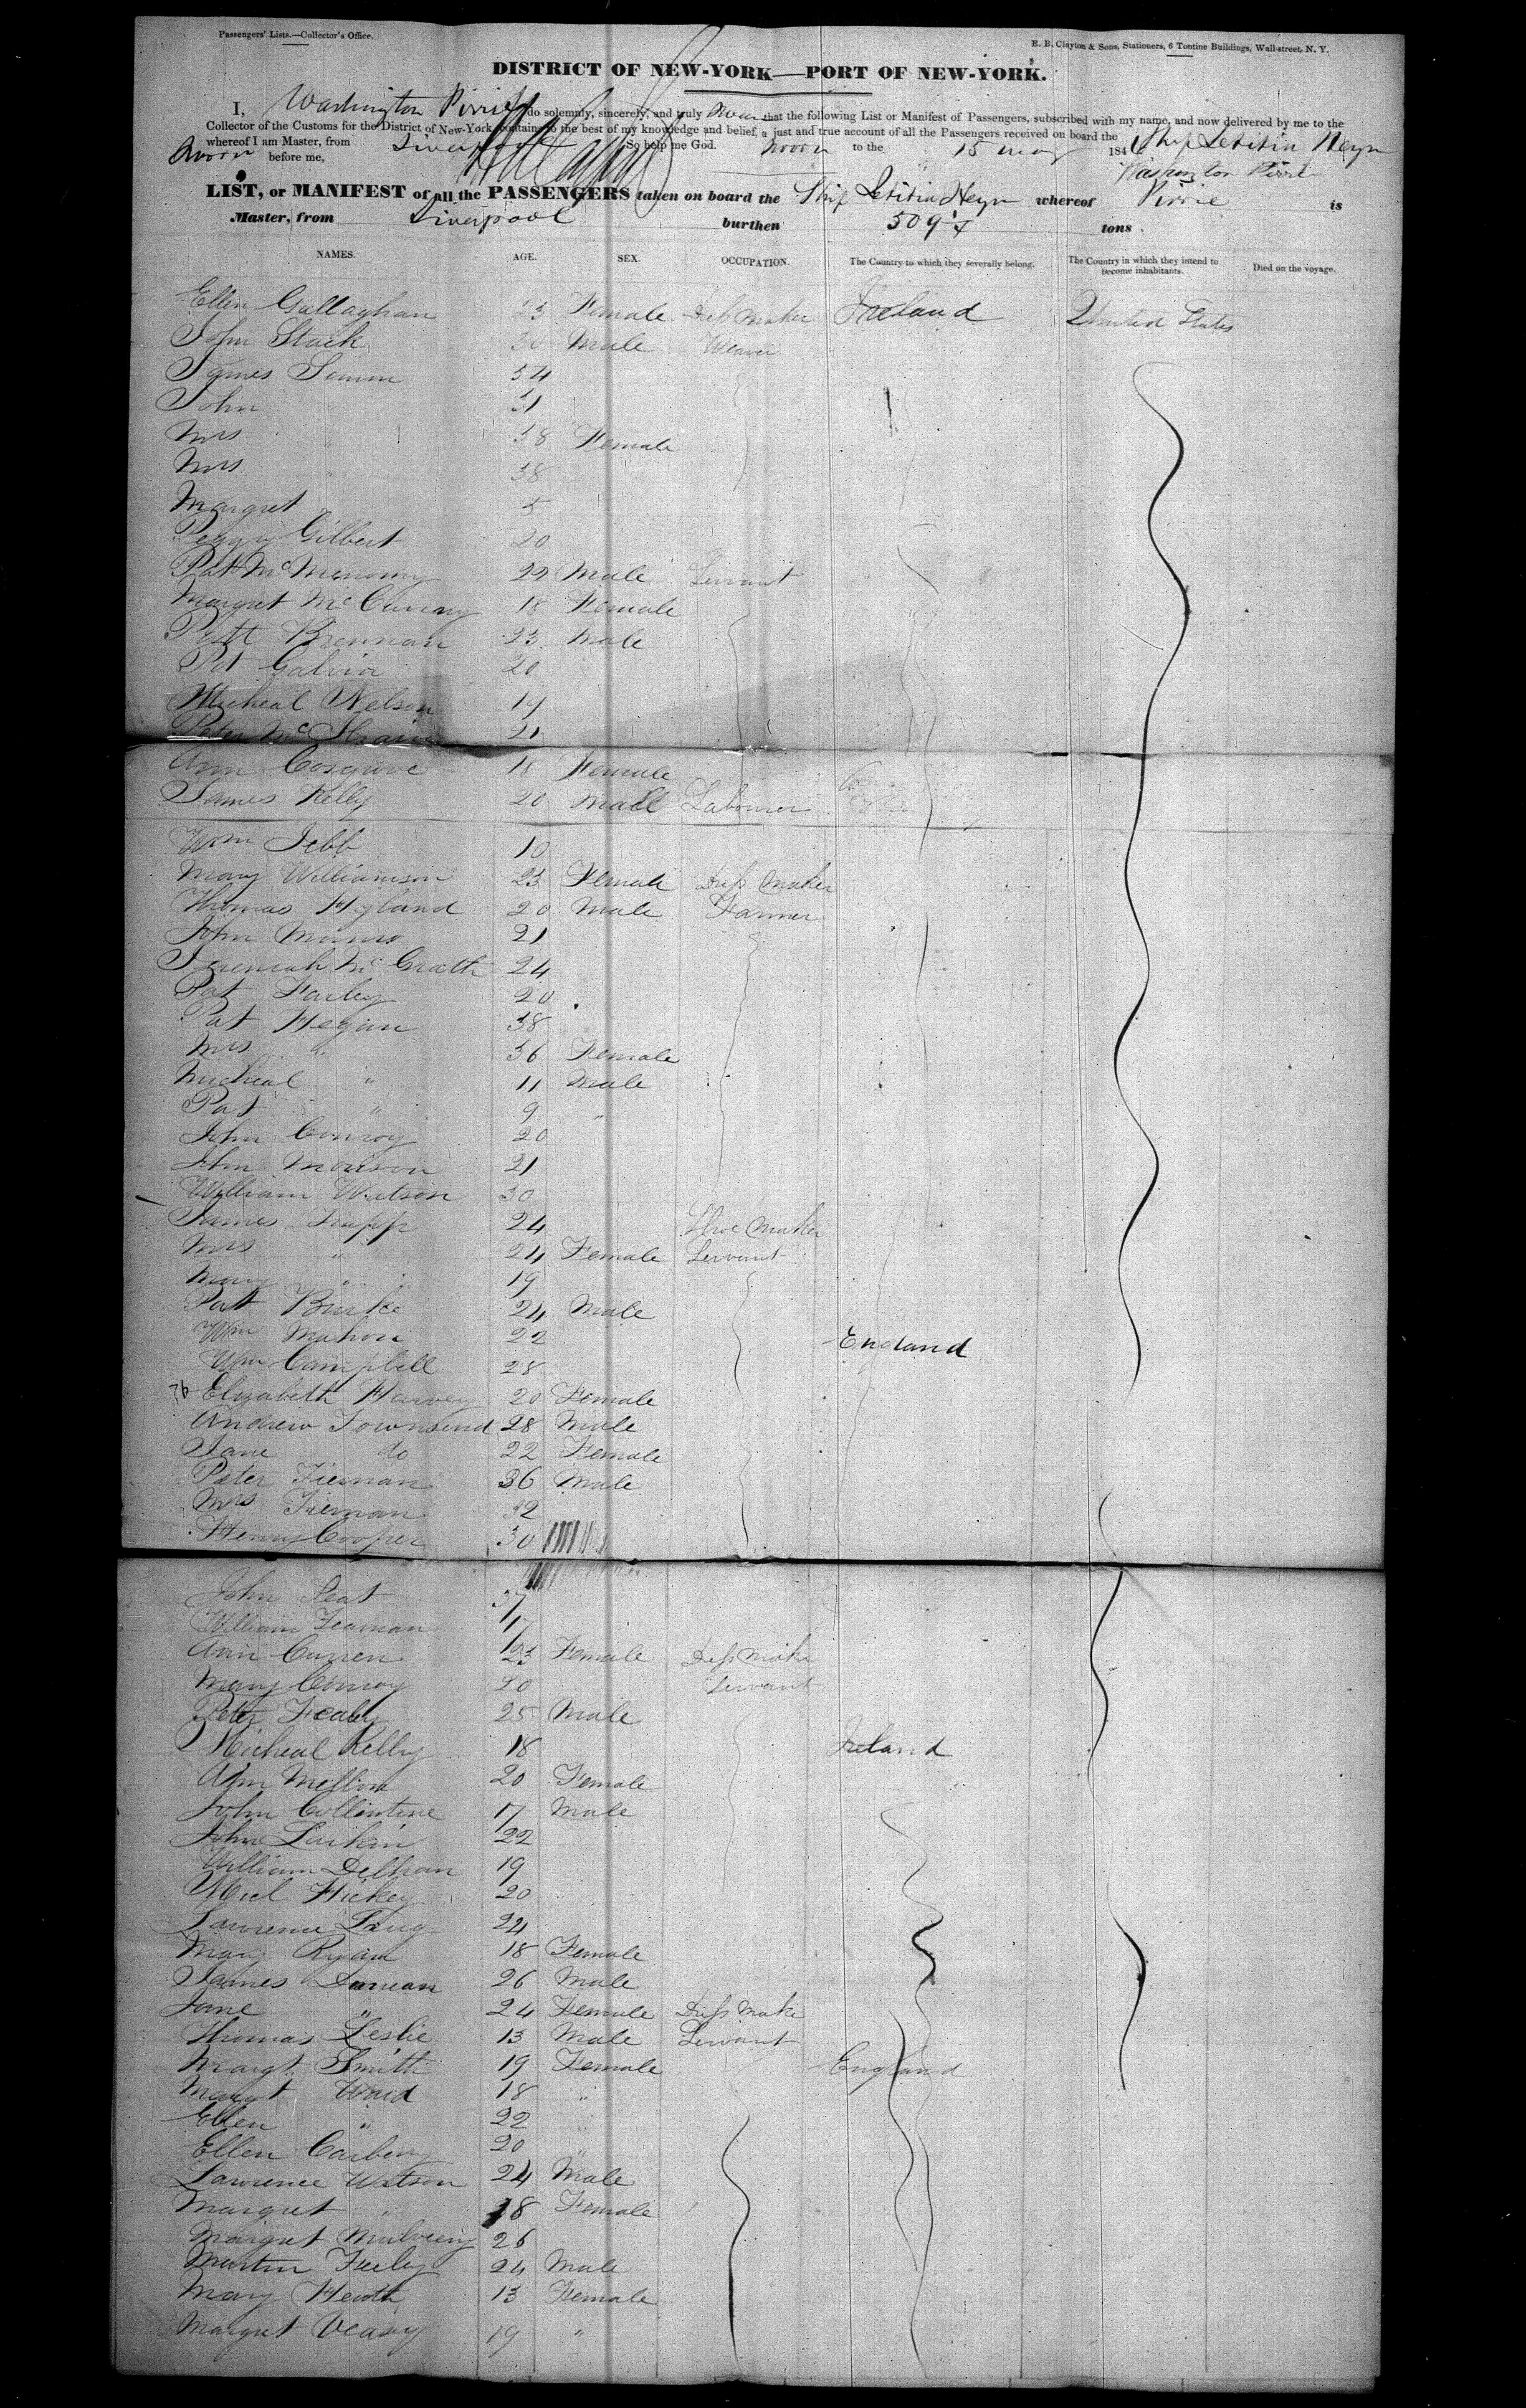 Passengers' Lists.—Collector's Office.
E. B. Clayton & Sons, Stationers, 6 Tontine Buildings, Wall-street, N. Y.
DISTRICT OF NEW-YORK—PORT OF NEW-YORK.
I, Washington Pirrie do solemnly, sincerely, and truly swear that the following List or Manifest of Passengers, subscribed with my name, and now delivered by me to the
Collector of the Customs for the District of New-York, contains to the best of my knowledge and belief, a just and true account of all the Passengers received on board the Ship Letitia Heyn
whereof I am Master, from Liverpool So help me God.
Sworn to the 15 May 1846
Sworn before me, Washington Pirrie
LIST, or MANIFEST of all the PASSENGERS taken on board the Ship Letitia Heyn whereof Pirrie is
Master, from Liverpool burthen 509 tons
NAMES. AGE. SEX. OCCUPATION. The Country to which they severally belong. The Country in which they intend to become inhabitants. Died on the voyage.
Ellen Gallaghan 23 Female Dress Maker Ireland United States
John Stack 30 Male Weaver
James 34
John " 31
Mrs " 38 Female
Mrs " 38
Margret 5
Peggy Gilbert 20
Pat McMenomy 22 Male Servant
Margret 18 Female
Patt Brennan 23 Male
Pat Galvin 20
Micheal Nelson 19
Peter 21
Ann Cosgrove 18 Female
James Kelly 20 Male Labourer
Wm Jebb 10
Mary Williamson 23 Female Dress Maker
Thomas Hyland 20 Male Farmer
John 21
Jeremiah McGrath 24
Pat Farley 20
Pat Hegan 38
Mrs " 36 Female
Micheal " 11 Male
Pat " 9 "
John Conroy 20
John Monson 21
William Watson 30
James 24 Shoe Maker
Mrs " 24 Female Servant
Mary " 19
Patt Burke 24 Male
Wm Mahon 22 England
Wm Campbell 28
Elizabeth Harvey 20 Female
Andrew Townsend 28 Male
Jane do 22 Female
Peter Tiernan 36 Male
Mrs Tiernan 32
Henry Cooper 30
John 37
William 17
Ann Curren 23 Female Dress Maker
Mary Conroy 20 Servant
Peter Fealey 25 Male
Micheal Kelly 18 Ireland
Ann 20 Female
John Collintine 17 Male
John Larkin 22
William 19
Micl Hickey 20
Lawrence 24
Mary Ryan 18 Female
James Duncan 26 Male
Jane " 24 Female Dress Make
Thomas Leslie 13 Male Servant
Margt. Smith 19 Female England
Margt Ward 18 "
Ellen " 22
Ellen Carbery 20 "
Lawrence Watson 24 Male
Margret " 18 Female
Margret 26
Martin Feeley 24 Male
Mary 13 Female
Margret Veasy 19 "